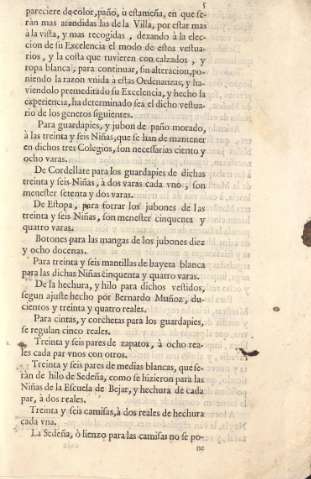 5
pareciere de color, paño, ù estameña, en que se-
ràn mas atendidas las de la Villa, por estar mas
à la vista, y mas recogidas, dexando à la elec-
cion de su Excelencia el modo de estos vestua-
rios, y la costa que tuvieren con calzados, y
ropa blanca, para continuar, sin alteracion, po-
niendo la razon vnida à estas Ordenanzas, y ha-
viendolo premeditado su Excelencia, y hecho la
experiencia, ha determinado sea el dicho vestua-
rio de los generos siguientes.
Para guardapies, y jubon de paño morado,
à las treinta y seis Niñas, que se han de mantener
en dichos tres Colegios, son necessarias ciento y
ocho varas.
De Cordellate para los guardapies de dichas
treinta y seis Niñas, à dos varas cada vno, son
menester setenta y dos varas.
De Estopa, para forrar los jubones de las
treinta y seis Niñas, son menester cinquenta y
quatro varas.
Botones para las mangas de los jubones diez
y ocho docenas.
Para treinta y seis mantillas de bayeta blanca
para las dichas Niñas cinquenta y quatro varas.
De la hechura, y hilo para dichos vestidos,
segun ajuste hecho por Bernardo Muñoz, du-
cientos y treinta y quatro reales.
Para cintas, y corchetas para los guardapies,
se regulan cinco reales.
Treinta y seis pares de zapatos, à ocho rea-
les cada par vnos con otros.
Treinta y seis pares de medias blancas, que se-
ràn de hilo de Sedeña, como se hizieron para las
Niñas de la Escuela de Bejar, y hechura de cada
par, à dos reales.
Treinta y seis camisas, à dos reales de hechura
cada vna.
La Sedeña, ò lienzo para las camisas no se po-
ne